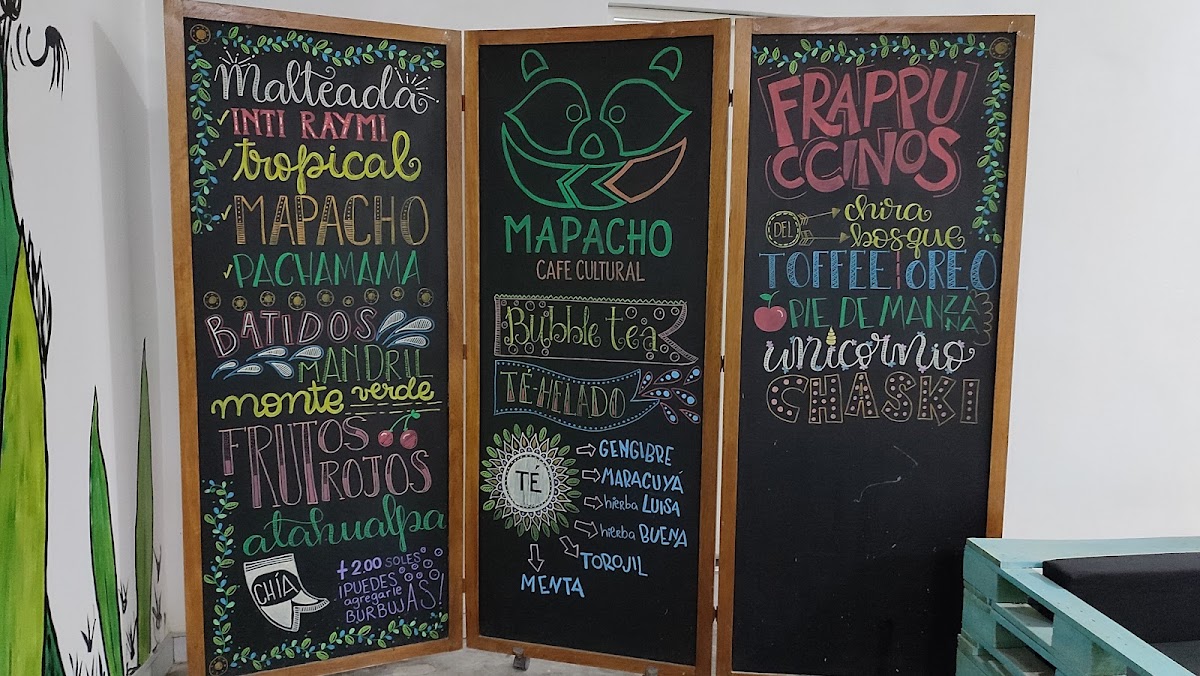 Malteada
INTI RAYMI
tropical
MAPACHO
PACHAMAMA
BATIDOS
MANDRIL
monte verde
FRUTOS
ROJOS
atahualpa
CHÍA
+2.00 SOLES
¡PUEDES
agregarle
BURBUJAS!
MAPACHO
CAFE CULTURAL
Bubble tea
TÉ-HELADO
TÉ
GENGIBRE
MARACUYÁ
hierba LUISA
hierba BUENA
TOROJIL
MENTA
FRAPPU
CCINOS
DEL
chira
bosque
TOFFEE | OREO
PIE DE MANZA
NA
unicornio
CHASKI